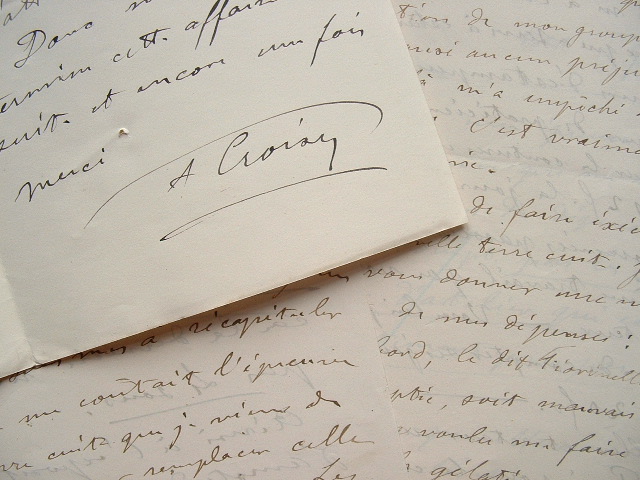 Donc
termine cette affaire
suite. et encore une fois
merci
A Croisy
tion de mon group
aucun préju
m'a empêché
C'est vraime
de faire exéc
terre cuite.
vous donner une
de mes dépenses :
le dit Fiorenell
soit mauvais
voulu me faire
géla
à récapituler
me coûtait l'épreuve
cuite que je viens de
remplacer celle
Les